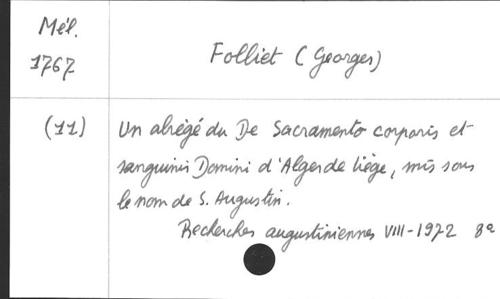 Mél.
1767
Folliet (Georges)
(11)
Un abrégé du De Sacramento corporis et
sanguinis Domini d'Alger de Liège, mis sous
le nom de S. Augustin.
Recherches augustiniennes VIII-1972 8°